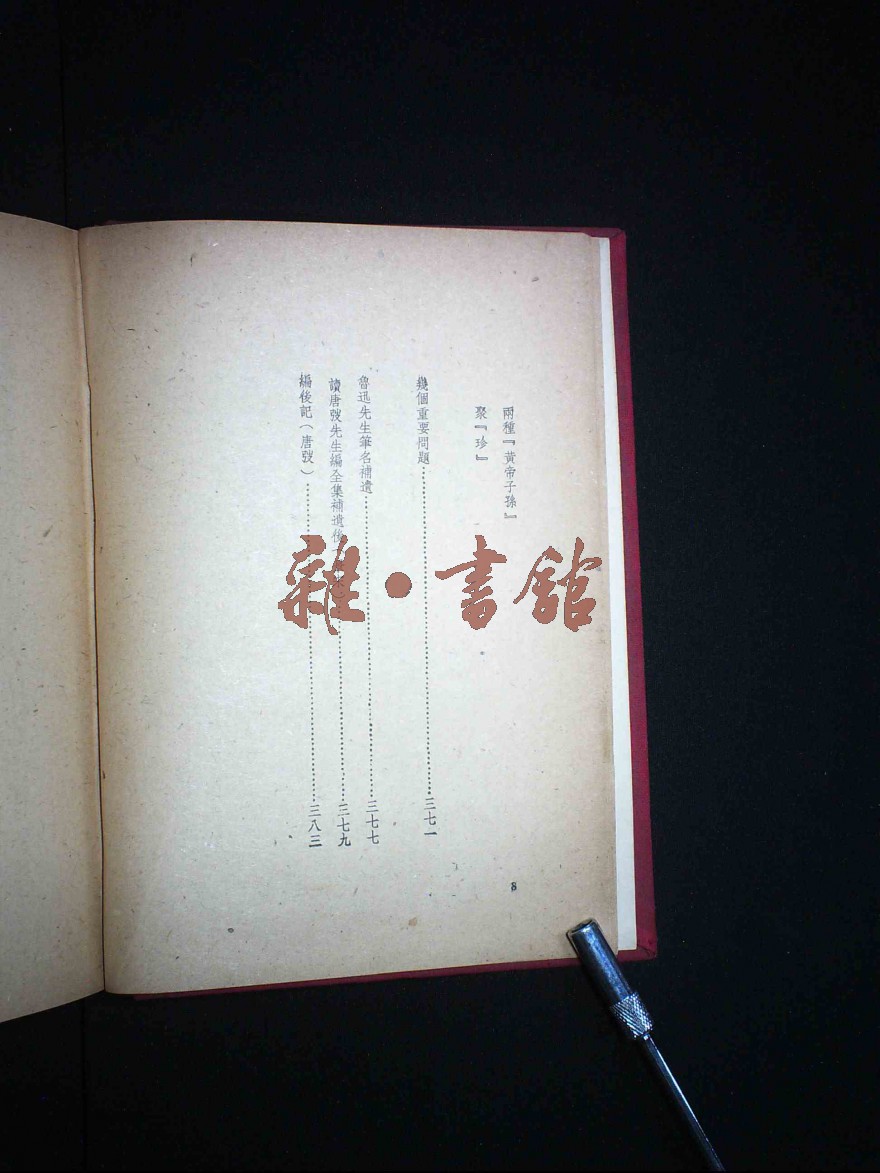 兩種『黃帝子孫』
聚『珍』
幾個重要問題⋯⋯三七一
魯迅先生筆名補遺⋯⋯三七七
讀唐弢先生編全集補遺後⋯⋯三七九
編後記(唐弢)⋯⋯三八三
8
雜·書舘